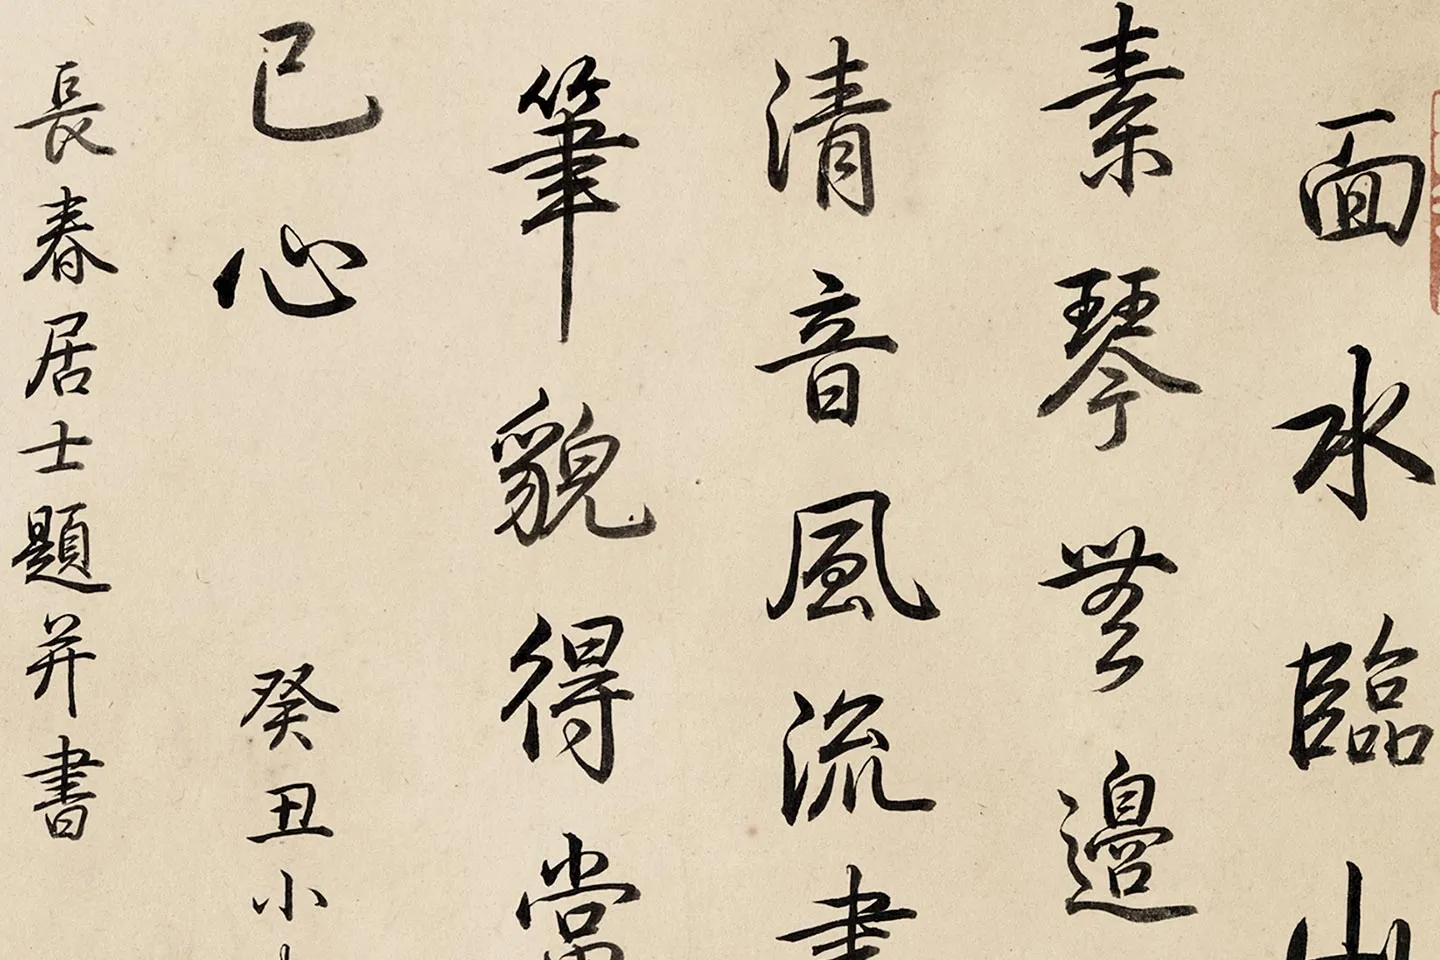 面水臨山
素琴無邊
清音風流畫
筆貌得當
已心
癸丑小
長春居士題并書